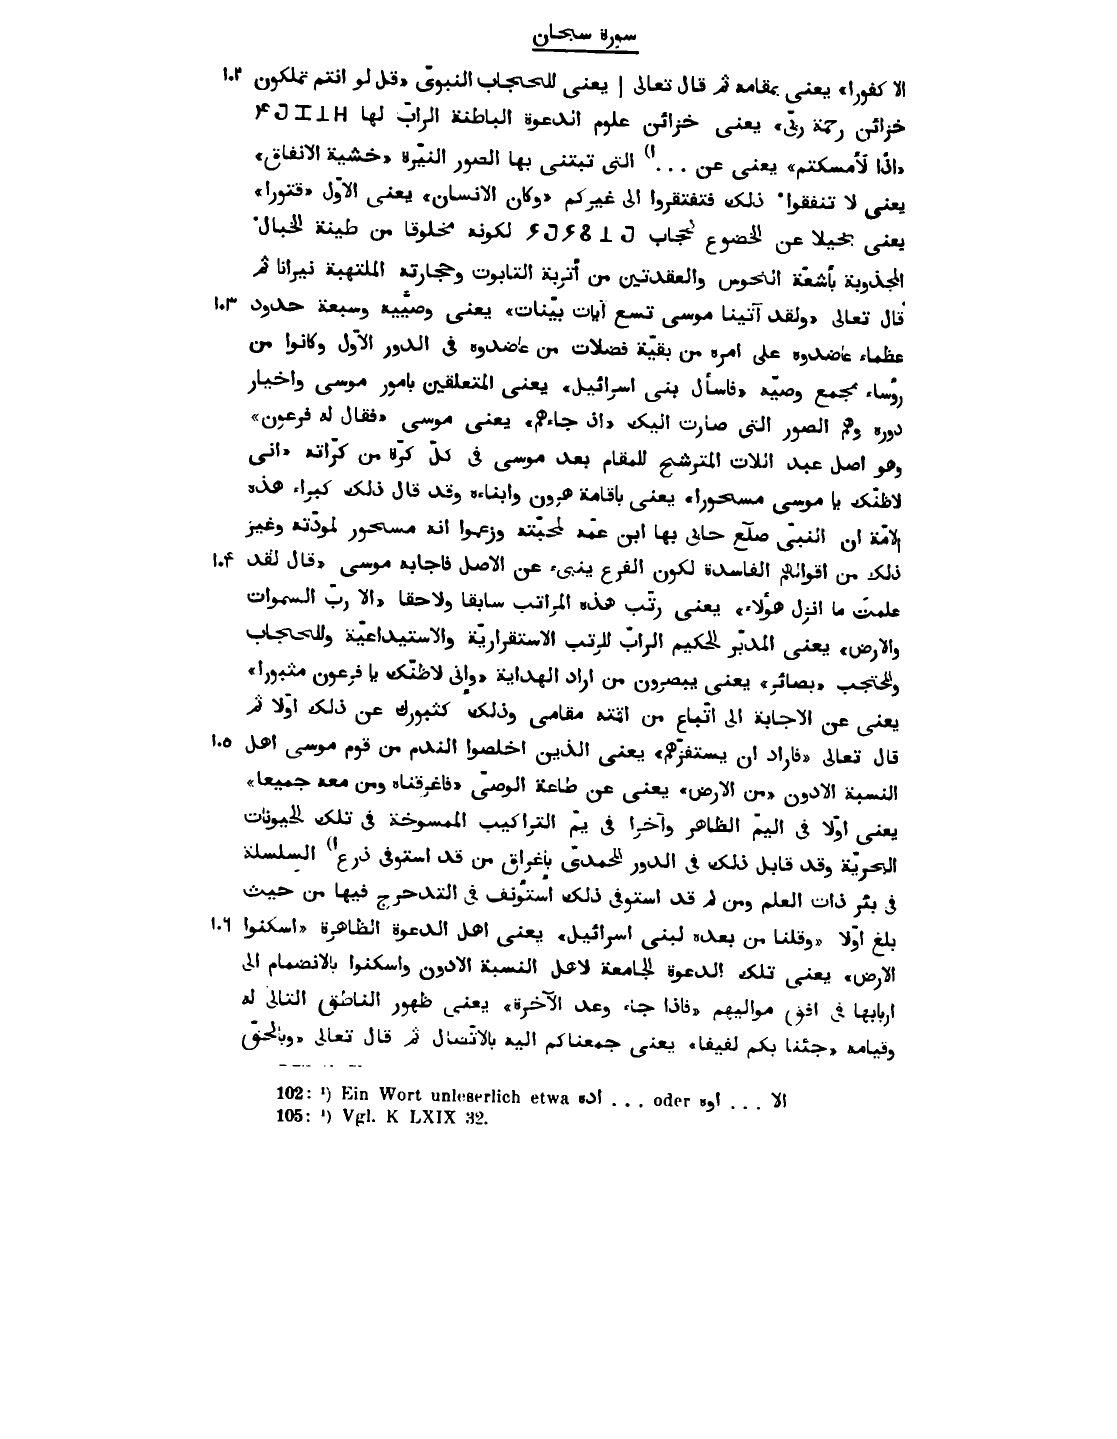 سورة سبحان
الا كفورا» يعنى بمقامه ثم قال تعالى | يعنى للحجاب النبوىّ «قل لو انتم تملكون ١٠٢
خزائن رحمة ربّى» يعنى خزائن علوم الدعوة الباطنة الرابّ لها
«اذًا لَأمسكتم» يعنى عن ...¹) التى تبتنى بها الصور النيّرة «خشية الانفاق»
يعنى لا تنفقوا ذلك فتفتقروا الى غيركم «وكان الانسان» يعنى الاوّل «قتورا»
يعنى بخيلا عن الخضوع لحجاب لكونه مخلوقا من طينة الخبال
المجذوبة بأشعّة النحوس والعقدتين من أتربة التابوت وحجارته الملتهبة نيرانا ثم
قال تعالى «ولقد آتينا موسى تسع آيات بيّنات» يعنى وصّييه وسبعة حدود ١٠٣
عظماء عاضدوه على امره من بقيّة فضلات من عاضدوه فى الدور الاوّل وكانوا من
رؤساء مجمع وصيّه «فاسأل بنى اسرائيل» يعنى المتعلقين بامور موسى واخيار
دوره وهم الصور التى صارت اليك «اذ جاءهم» يعنى موسى «فقال له فرعون»
وهو اصل عبد اللات المترشح للمقام بعد موسى فى كلّ كرّة من كرّاته «انى
لاظنّك يا موسى مسحورا» يعنى باقامة هرون وابناءه وقد قال ذلك كبراء هذه
الامّة ان النبىّ صلّع حابى بها ابن عمّه لمحبّته وزعموا انه مسحور لمودّته وغير
ذلك من اقوالهم الفاسدة لكون الفرع ينبىء عن الاصل فاجابه موسى «قال لقد ١٠٤
علمتَ ما انزل هؤلاء» يعنى رتّب هذه المراتب سابقا ولاحقا «الا ربّ السموات
والارض» يعنى المدبّر الحكيم الرابّ للرتب الاستقراريّة والاستيداعيّة وللحجاب
وللمحتجب «بصائر» يعنى يبصرون من اراد الهداية «وانى لاظنّك يا فرعون مثبورا»
يعنى عن الاجابة الى اتّباع من اقمته مقامى وذلك كثبورك عن ذلك اوّلا ثم
قال تعالى «فاراد ان يستفزّهم» يعنى الذين اخلصوا الندم من قوم موسى اهل ١٠٥
النسبة الادون «من الارض» يعنى عن طاعة الوصىّ «فاغرقناه ومن معه جميعا»
يعنى اوّلا فى اليمّ الظاهر وآخرا فى يمّ التراكيب الممسوخة فى تلك الحيونات
البحريّة وقد قابل ذلك فى الدور المحمدىّ باغراق من قد استوفى ذرع¹) السلسلة
فى بئر ذات العلم ومن لم قد استوفى ذلك اُستؤنف فى التدحرج فيها من حيث
بلغ اوّلا «وقلنا من بعده لبنى اسرائيل» يعنى اهل الدعوة الظاهرة «اسكنوا ١٠٦
الارض» يعنى تلك الدعوة الجامعة لاهل النسبة الادون واسكنوا بالانضمام الى
اربابها فى افق مواليهم «فاذا جاء وعد الآخرة» يعنى ظهور الناطق التالى له
وقيامه «جئنا بكم لفيفا» يعنى جمعناكم اليه بالاتّصال ثم قال تعالى «وبالحقّ
102: ¹) Ein Wort unleserlich etwa الا ... اوه oder ... اده
105: ¹) Vgl. K LXIX 32.